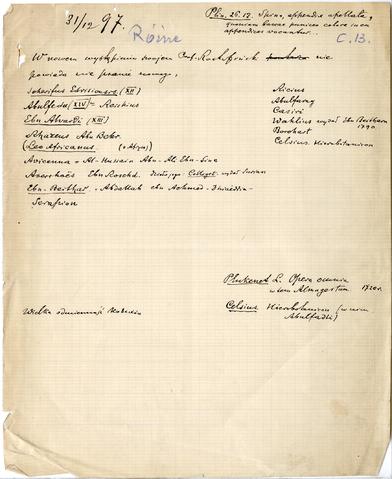 31/12 97.
Różne
Plin. 26.12. Spina, appendix apellata,
quoniam baccae puniceo colore in ea
appendices vocantur.
C. 13.
W nowem wystąpieniu swojem Prof. Rostafiński nie
powiada nic prawie nowego,
Scherifus Edrisionsis (XII)
Abulfeda (XIV) - Reiskius
Ebn Alvardi (XIII)
Rhazeus Abu Bekr.
(Leo Africanus (o Afryce)
Avicenna = Al-Hussain Abu-Ali Ebn-Sina
Averrhoës Ebn Roschd. Colliget
Ebn-Beithar. Abdallah ebn Achmed-
Serapion
Ricius
Abulfarag
Casiri
Wahlius wydał Ebn Beitharа
1790.
Bochart
Celsius Hierobotanicon
Plukenet L. Opera omnia
w tem Almagestum 1720r.
Celsius Hierobotanicon (w nim
Abulfadli)
Wielka odmienność